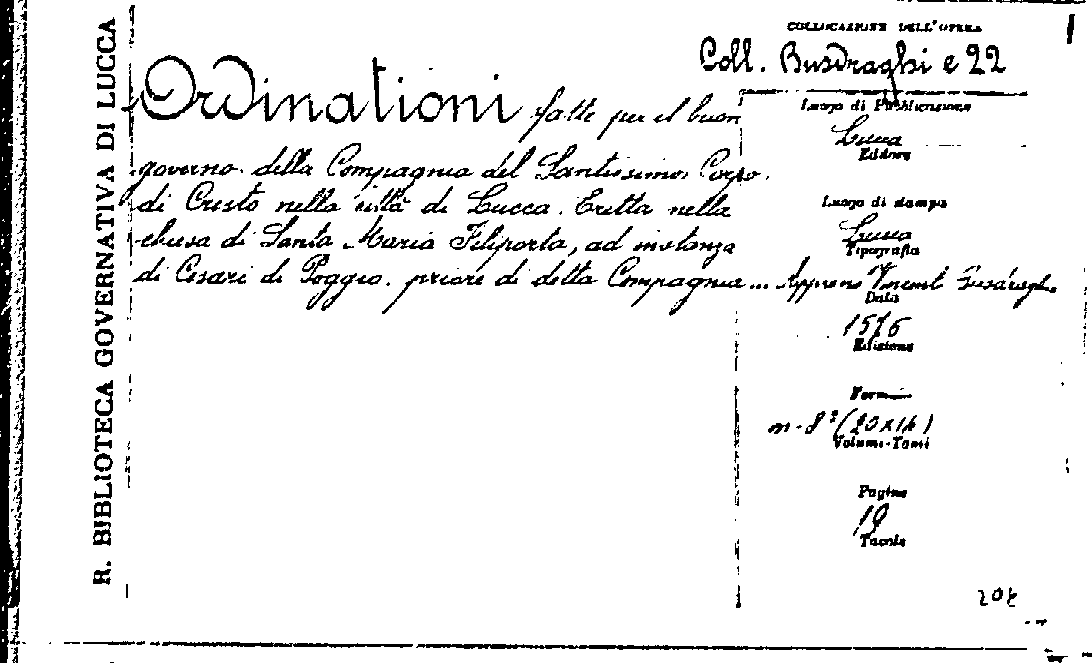 R. BIBLIOTECA GOVERNATIVA DI LUCCA
COLLOCAZIONE DELL'OPERA
Coll. Busdraghi e 22
Ordinationi fatte per il buon
governo della Compagnia del Santissimo Corpo
di Cristo nella città di Lucca. Eretta nella
chiesa di Santa Maria Filiporta, ad instanza
di Cesari di Poggio, priore di detta Compagnia...
Luogo di Pubblicazione
Lucca
Editore
Luogo di stampa
Lucca
Tipografia
Appresso Vincenti Busdraghi
Data
1576
Edizione
Formato
in-8° (20x14)
Volumi-Tomi
Pagine
19
Tavole